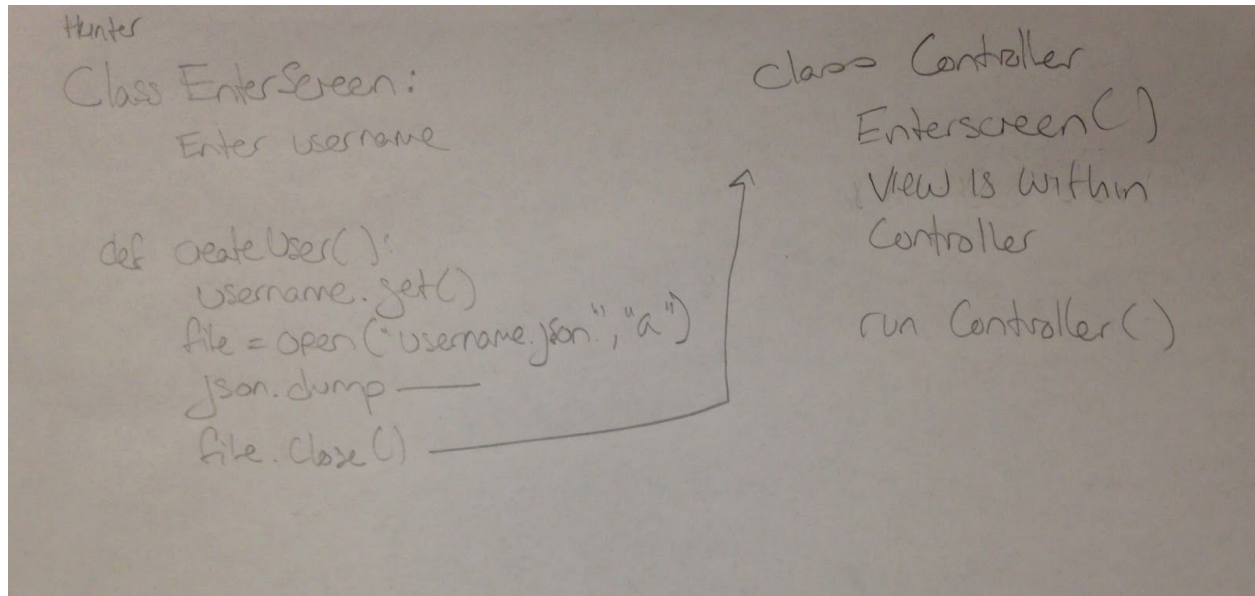 Hunter
Class EnterScreen:
Enter username
def createUser():
username.get()
file = open("username.json", "a")
json.dump
file.close()
class Controller
Enterscreen()
View is within
Controller
run Controller()